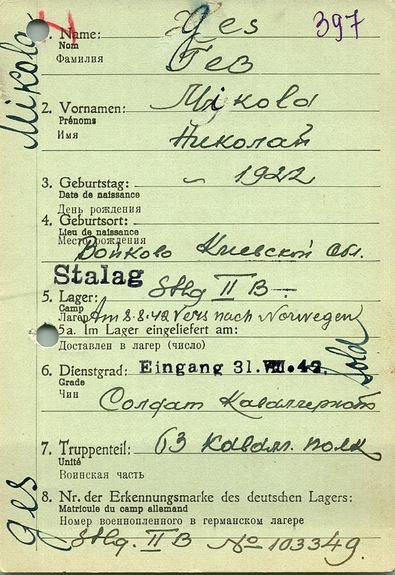 Мікола
397
1. Name: Yes
Nom
Фамилия Гев
2. Vornamen: Mikola
Prénoms
Имя Николай
3. Geburtstag: — 1922
Date de naissance
День рождения
4. Geburtsort:
Lieu de naissance
Место рождения
Войково Киевской обл.
Stalag
5. Lager: Stlg II B —
Camp
Лагерь Am 8.8.42 Vers nach Norwegen
5a. Im Lager eingeliefert am:
Доставлен в лагерь (число)
6. Dienstgrad: Eingang 31. VII. 42. Sold
Grade
Чин Солдат
7. Truppenteil: 63 кавал. полк
Unité
Воинская часть
8. Nr. der Erkennungsmarke des deutschen Lagers:
Matricule du camp allemand
Номер военнопленного в германском лагере
Stlg. II B № 103349.